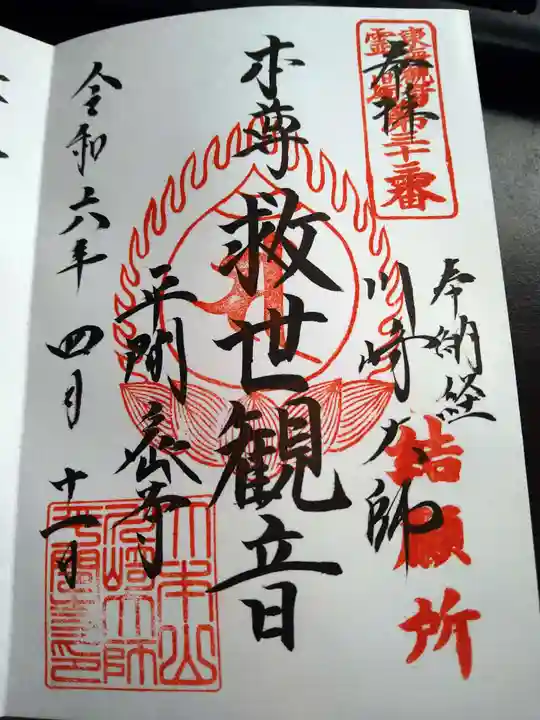 東海観音
霊場第三十三番
奉拝
奉納経
結願所
川崎大師
本尊
救世観音
平間寺
令和六年四月十一日
大本山
川崎大師